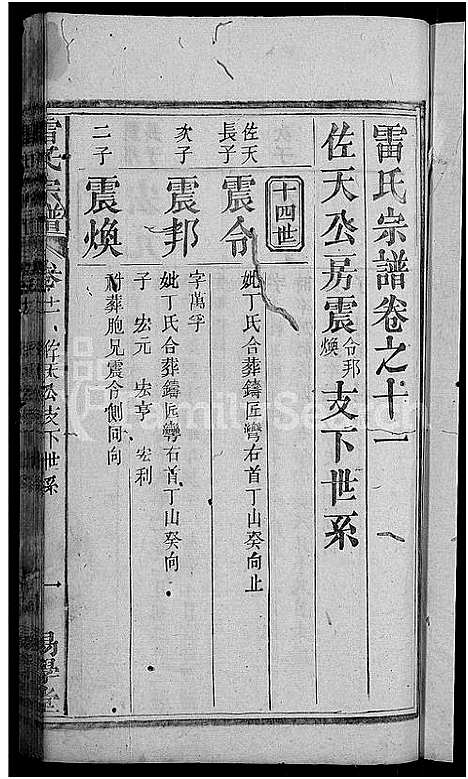 雷氏宗譜卷之十一
佐天公房震令邦煥支下世系
十四世
佐天長子
震令
妣丁氏合葬鑄匠灣右首丁山癸向止
次子
震邦
字萬孚
妣丁氏合葬鑄匠灣右首丁山癸向
子 宏元 宏亨 宏利
二子
震煥
祔葬胞兄震令側同向
雷氏宗譜
卷十一 佐天公支下世系
一
易學堂
FamilySearch